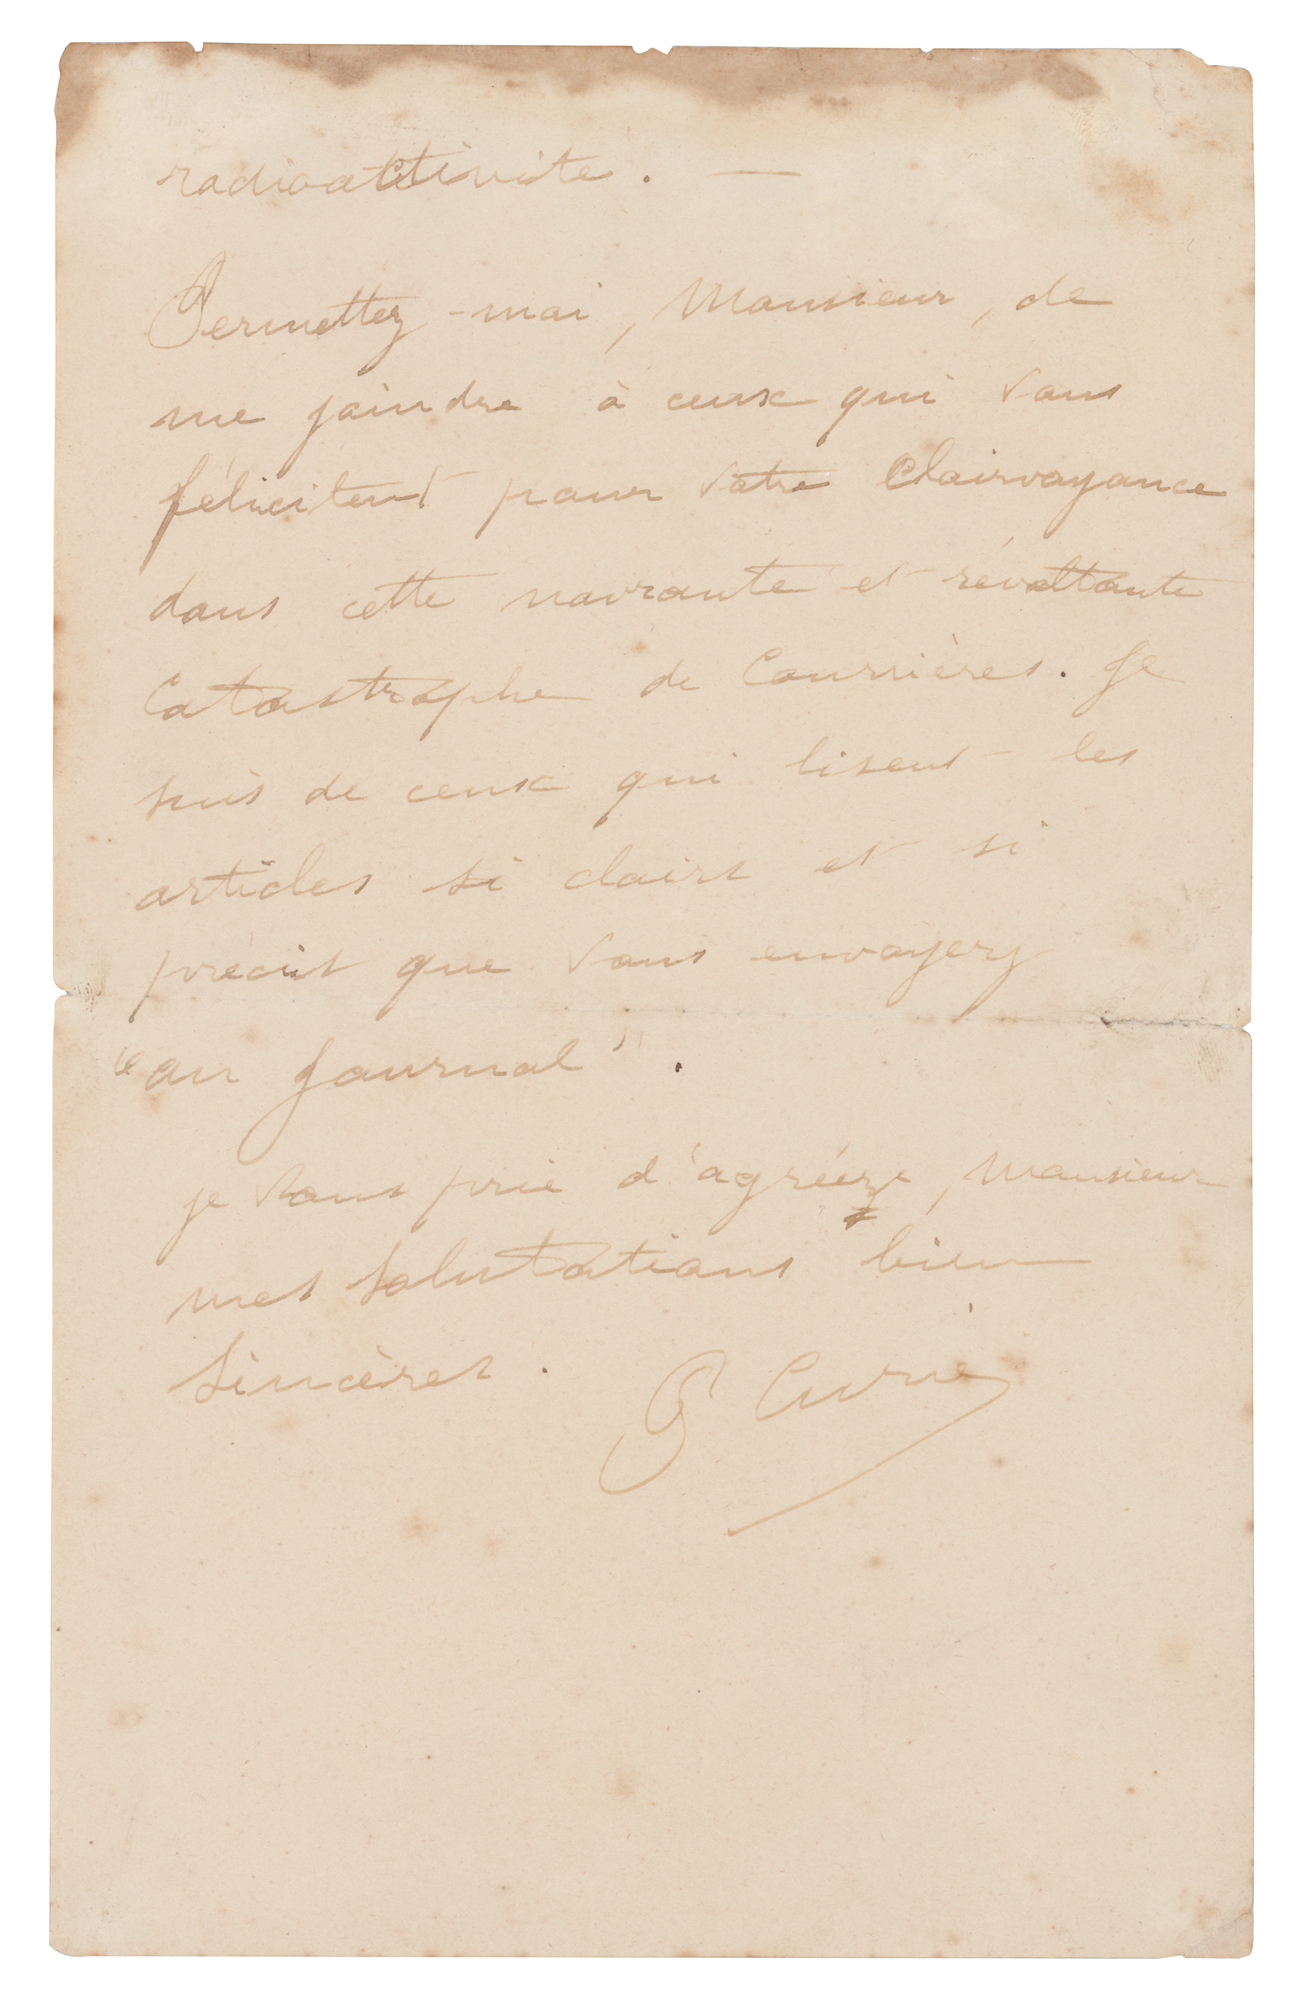 radioactivité. —
Permettez-moi, Monsieur, de
me joindre à ceux qui vous
félicitent pour votre Clairvoyance
dans cette navrante et révoltante
Catastrophe de Courrières. Je
suis de ceux qui lisent les
articles si clairs et si
précis que vous envoyez
"au Journal".
je vous prie d'agréer, Monsieur
mes salutations bien
sincères. P Curie